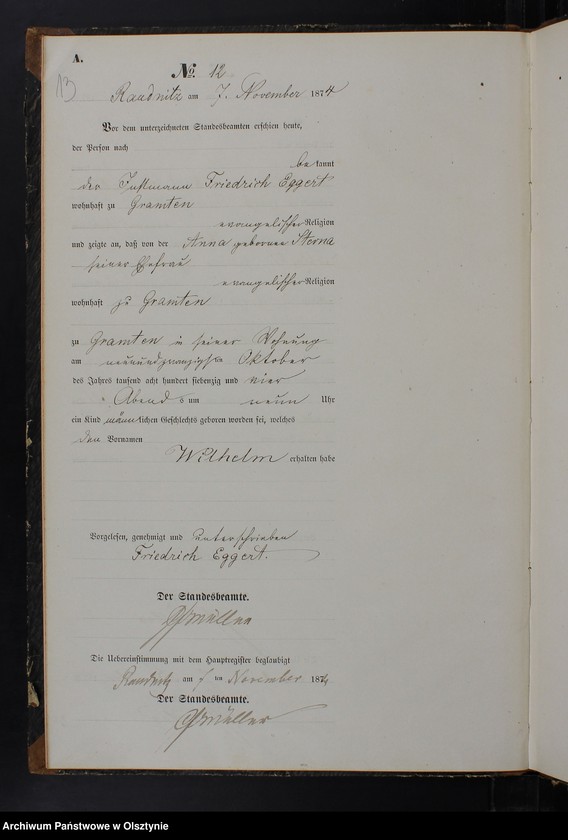 A.
13
No. 12
Raudnitz am 7. November 1874
Vor dem unterzeichneten Standesbeamten erschien heute,
der Person nach
bekannt
der Instmann Friedrich Eggert
wohnhaft zu Gramten
evangelischer Religion
und zeigte an, daß von der Anna geborenen Sterna
seiner Ehefrau
evangelischer Religion
wohnhaft zu Gramten
zu Gramten in seiner Wohnung
am neunundzwanzigsten Oktober
des Jahres tausend acht hundert siebenzig und vier
Abends um neun Uhr
ein Kind männlichen Geschlechts geboren worden sei, welches
den Vornamen
Wilhelm erhalten habe
Vorgelesen, genehmigt und unterschrieben
Friedrich Eggert.
Der Standesbeamte.
Die Uebereinstimmung mit dem Hauptregister beglaubigt
Raudnitz am 7 ten November 1874
Der Standesbeamte.
Archiwum Państwowe w Olsztynie